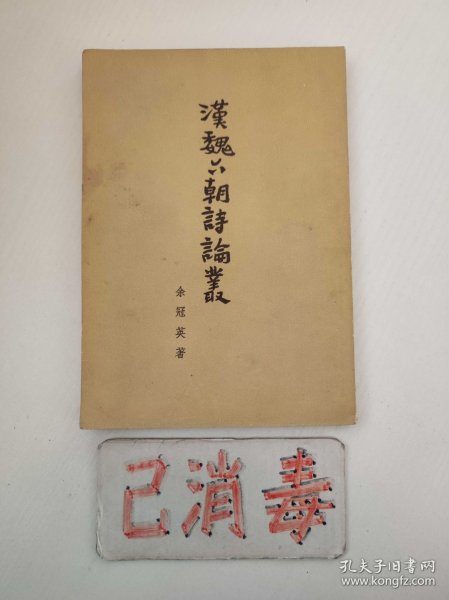 漢魏六朝詩論叢
余冠英著
已消毒
孔夫子旧书网
www.kongfz.com